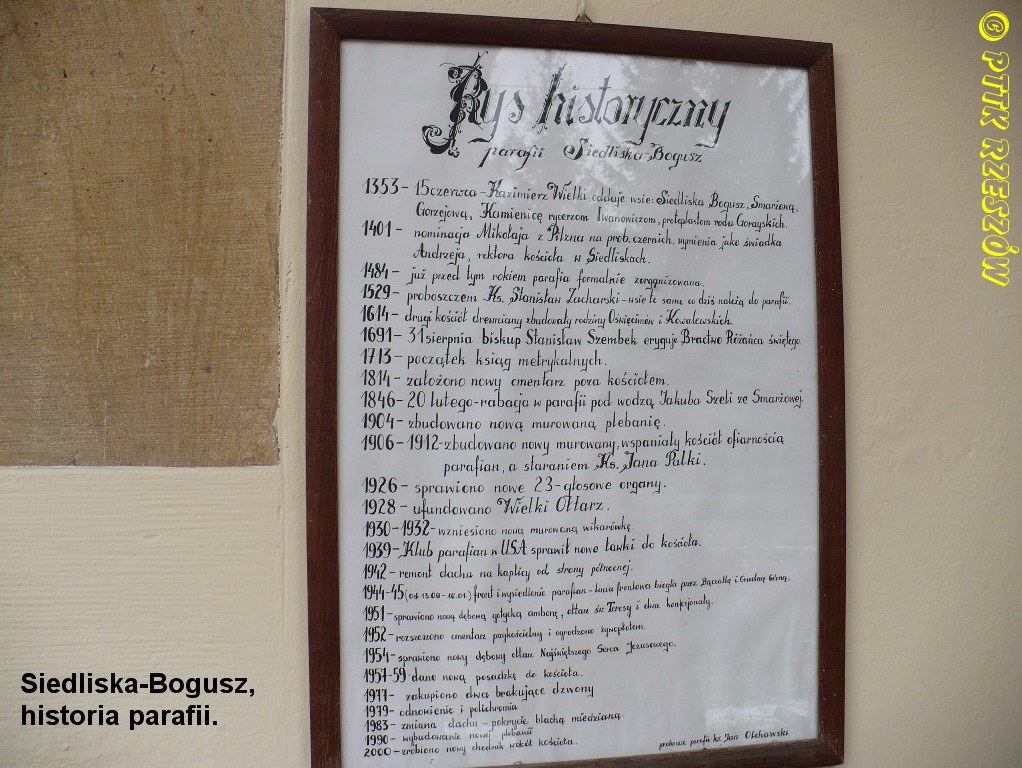 Rys historyczny
parafii Siedliska-Bogusz
1353 - 15 czerwca - Kazimierz Wielki oddaje wsie: Siedliska Bogusz, Smarżoną,
Gorzejową, Kamienicę rycerzom Iwanowiczom, protoplastom rodu Gorayskich.
1401 - nominacja Mikołaja z Pilzna na prob. czernich. wymienia jako świadka
Andrzeja, rektora kościoła w Siedliskach.
1484 - już przed tym rokiem parafia formalnie zorganizowana,
1529 - proboszczem Ks. Stanisław Zucharski - wsie te same co dziś należą do parafii.
1614 - drugi kościół drewniany zbudowały rodziny Oświęcimów i Kowalewskich.
1691 - 31 sierpnia biskup Stanisław Szembek eryguje Bractwo Różańca świętego.
1713 - początek ksiąg metrykalnych.
1814 - założono nowy cmentarz poza kościołem.
1846 - 20 lutego - rabacja w parafii pod wodzą Jakuba Szeli ze Smarżowej.
1904 - zbudowano nową murowaną plebanię.
1906 - 1912 - zbudowano nowy murowany, wspaniały kościół ofiarnością
parafian, a staraniem Ks. Jana Palki.
1926 - sprawiono nowe 23-głosowe organy.
1928 - ufundowano Wielki Ołtarz.
1930 - 1932 - wzniesiono nową murowaną wikarówkę.
1939 - Klub parafian w USA sprawił nowe ławki do kościoła.
1942 - remont dachu na kaplicy od strony północnej.
1944-45 (od 13.09 - 16.01) front i wysiedlenie parafian - linia frontowa biegła przez Bączałkę i Grudną Górną.
1951 - sprawiono nową dębową gotycką ambonę, ołtarz św. Teresy i dwa konfesjonały.
1952 - rozszerzono cmentarz przykościelny i ogrodzono żywopłotem.
1954 - sprawiono nowy dębowy ołtarz Najświętszego Serca Jezusowego.
1957-59 dano nową posadzkę do kościoła.
1977 - zakupiono dwa brakujące dzwony
1979 - odnowienie i polichromia
1983 - zmiana dachu - pokrycie blachą miedzianą
1990 - wybudowanie nowej plebanii
2000 - zrobiono nowy chodnik wokół kościoła.
proboszcz parafii ks. Jan Olchawski
Siedliska-Bogusz,
historia parafii.
© PTTK RZESZÓW